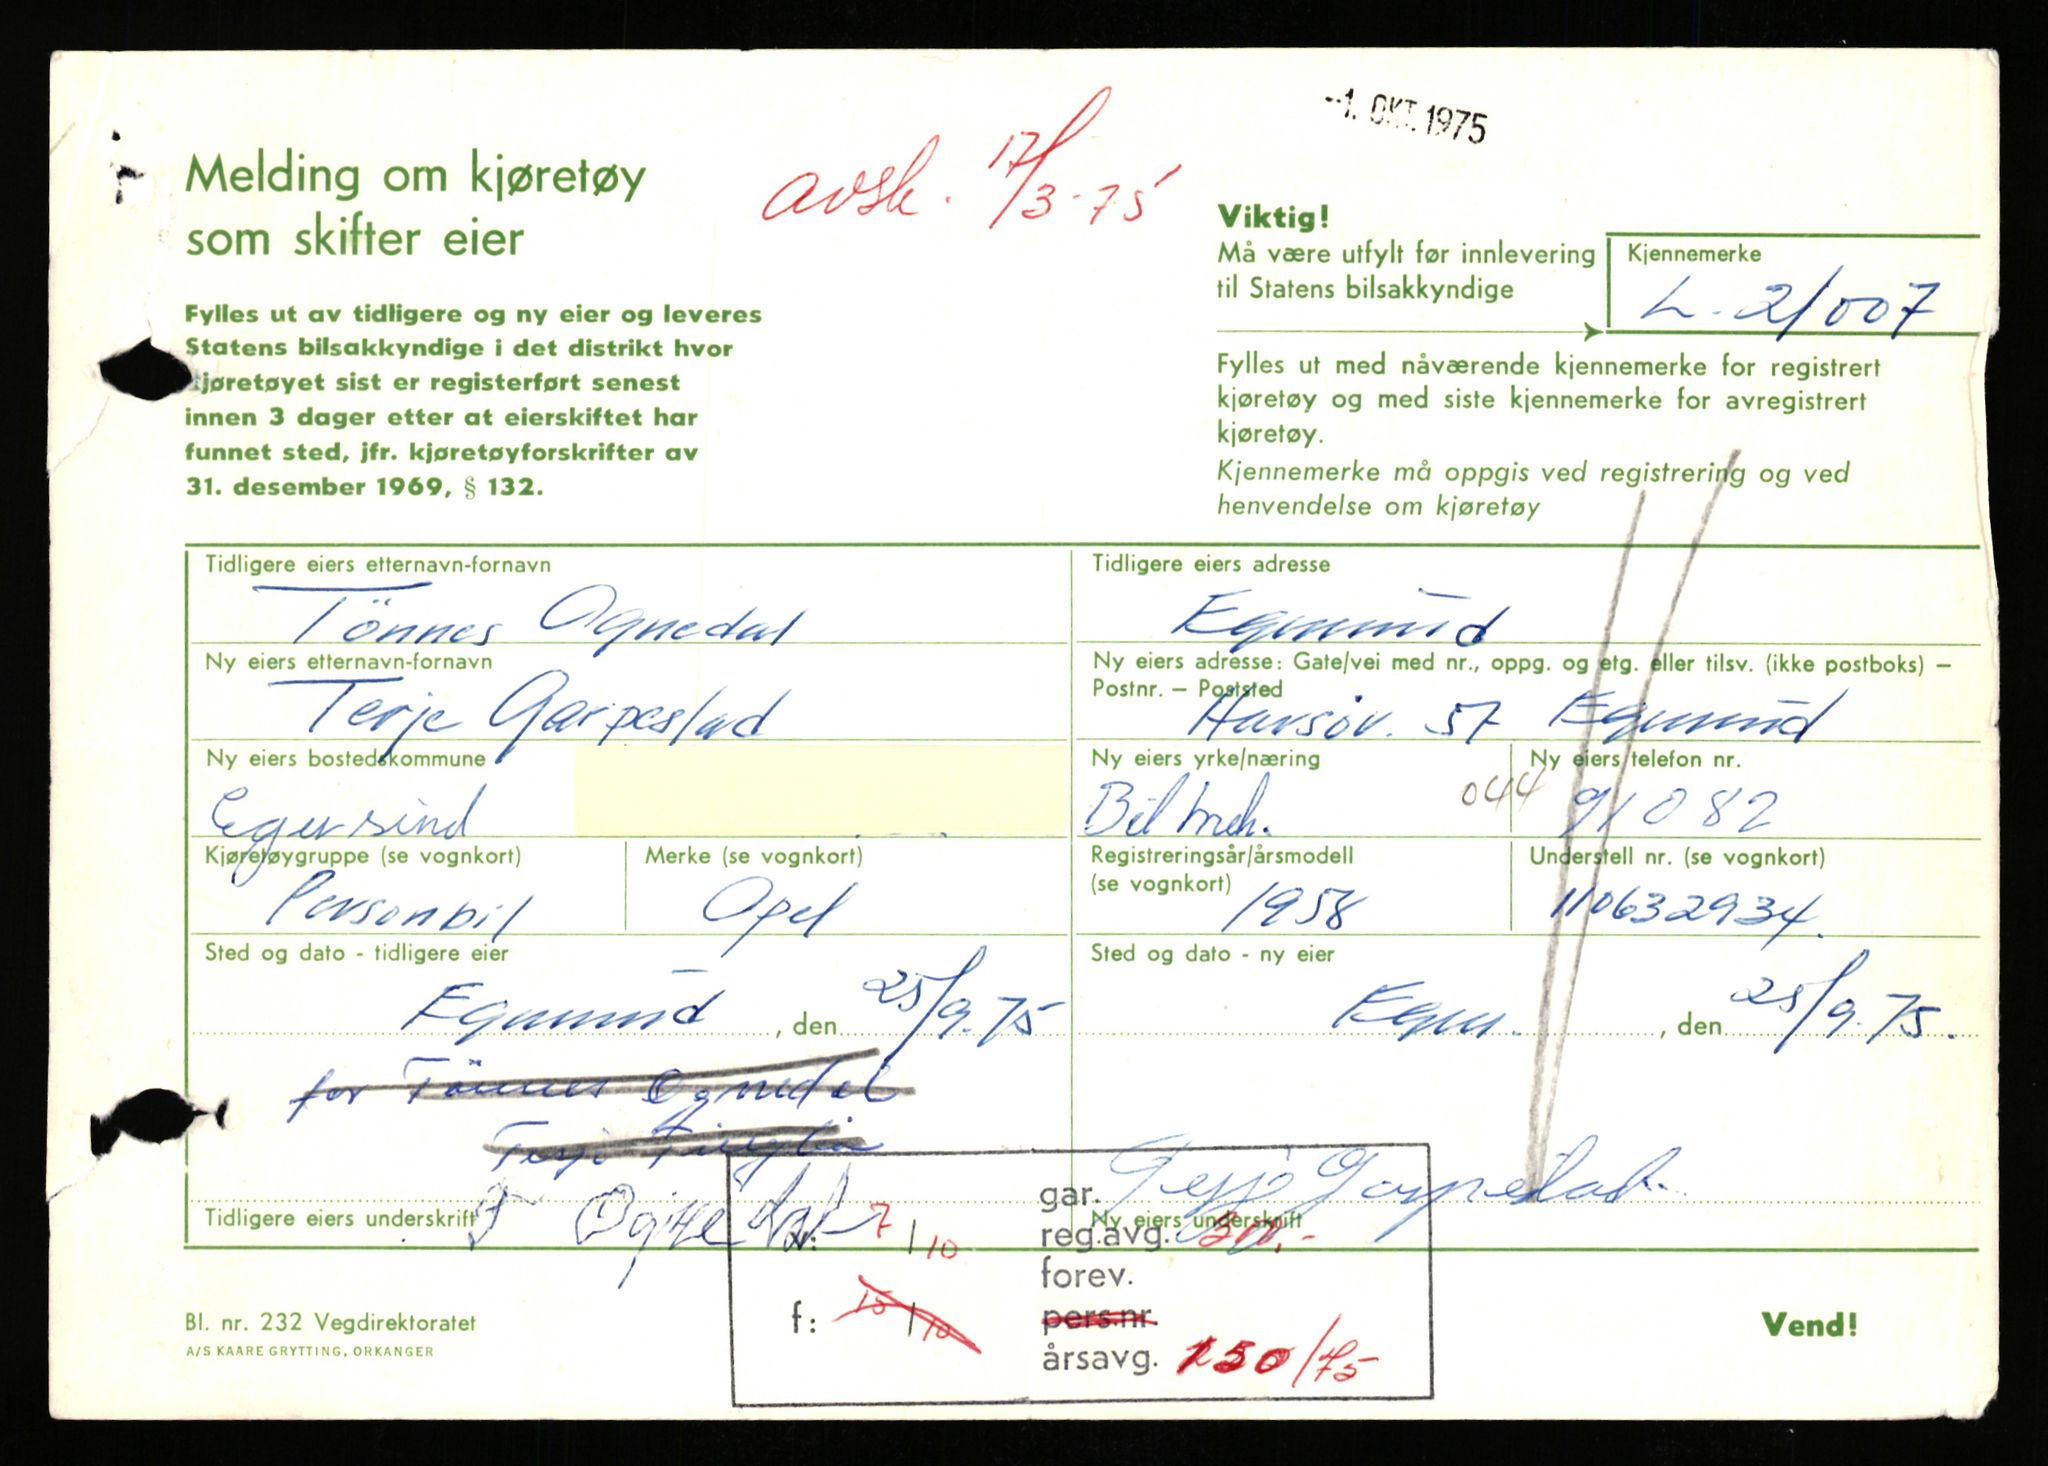 -1. OKT. 1975
Melding om kjøretøy
som skifter eier
avsk. 17/3-75
Viktig!
Må være utfylt før innlevering
til Statens bilsakkyndige
Kjennemerke
L-21007
Fylles ut av tidligere og ny eier og leveres
Statens bilsakkyndige i det distrikt hvor
kjøretøyet sist er registerført senest
innen 3 dager etter at eierskiftet har
funnet sted, jfr. kjøretøyforskrifter av
31. desember 1969, § 132.
Fylles ut med nåværende kjennemerke for registrert
kjøretøy og med siste kjennemerke for avregistrert
kjøretøy.
Kjennemerke må oppgis ved registrering og ved
henvendelse om kjøretøy
Tidligere eiers etternavn-fornavn
Tönnes Ognedal
Tidligere eiers adresse
Egersund
Ny eiers etternavn-fornavn
Terje Garpestad
Ny eiers adresse: Gate/vei med nr., oppg. og etg. eller tilsv. (ikke postboks) –
Postnr. – Poststed
Havsøv. 57 Egersund
Ny eiers bostedskommune
Egersund
Ny eiers yrke/næring
Bil meh.
Ny eiers telefon nr.
044 91082
Kjøretøygruppe (se vognkort)
Personbil
Merke (se vognkort)
Opel
Registreringsår/årsmodell
(se vognkort)
1958
Understell nr. (se vognkort)
110632934.
Sted og dato - tidligere eier
Egersund, den 25/9.75
Sted og dato - ny eier
Eger., den 25/9.75.
for Tönnes Ognedal
T Ognedal
Tidligere eiers underskrift
Terje Garpestad
Ny eiers underskrift
gar.
7/10
reg.avg. 300,-
forev.
f: 15/10
pers.nr.
årsavg. 150/75
Bl. nr. 232 Vegdirektoratet
A/S KAARE GRYTTING, ORKANGER
Vend!